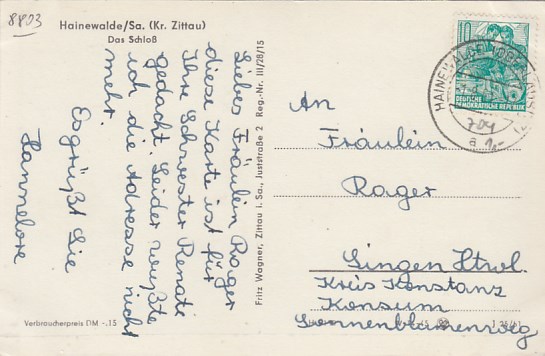 8803
Hainewalde/Sa. (Kr. Zittau)
Das Schloß
Liebes Fräulein Rager
diese Karte ist für
Ihre Schwester Renate
gedacht. Leider wußte
ich die Adresse nicht
mehr.
Es grüßt Sie
Hannelore
Verbraucherpreis DM -.15
Fritz Wagner, Zittau i. Sa., Juststraße 2 Reg.-Nr. III/28/15
10
DEUTSCHE
DEMOKRATISCHE REPUBLIK
HAINEWALDE
a
An
Fräulein
Rager
Singen Htwl.
Kreis Konstanz
Konsum
Sonnenblumenweg